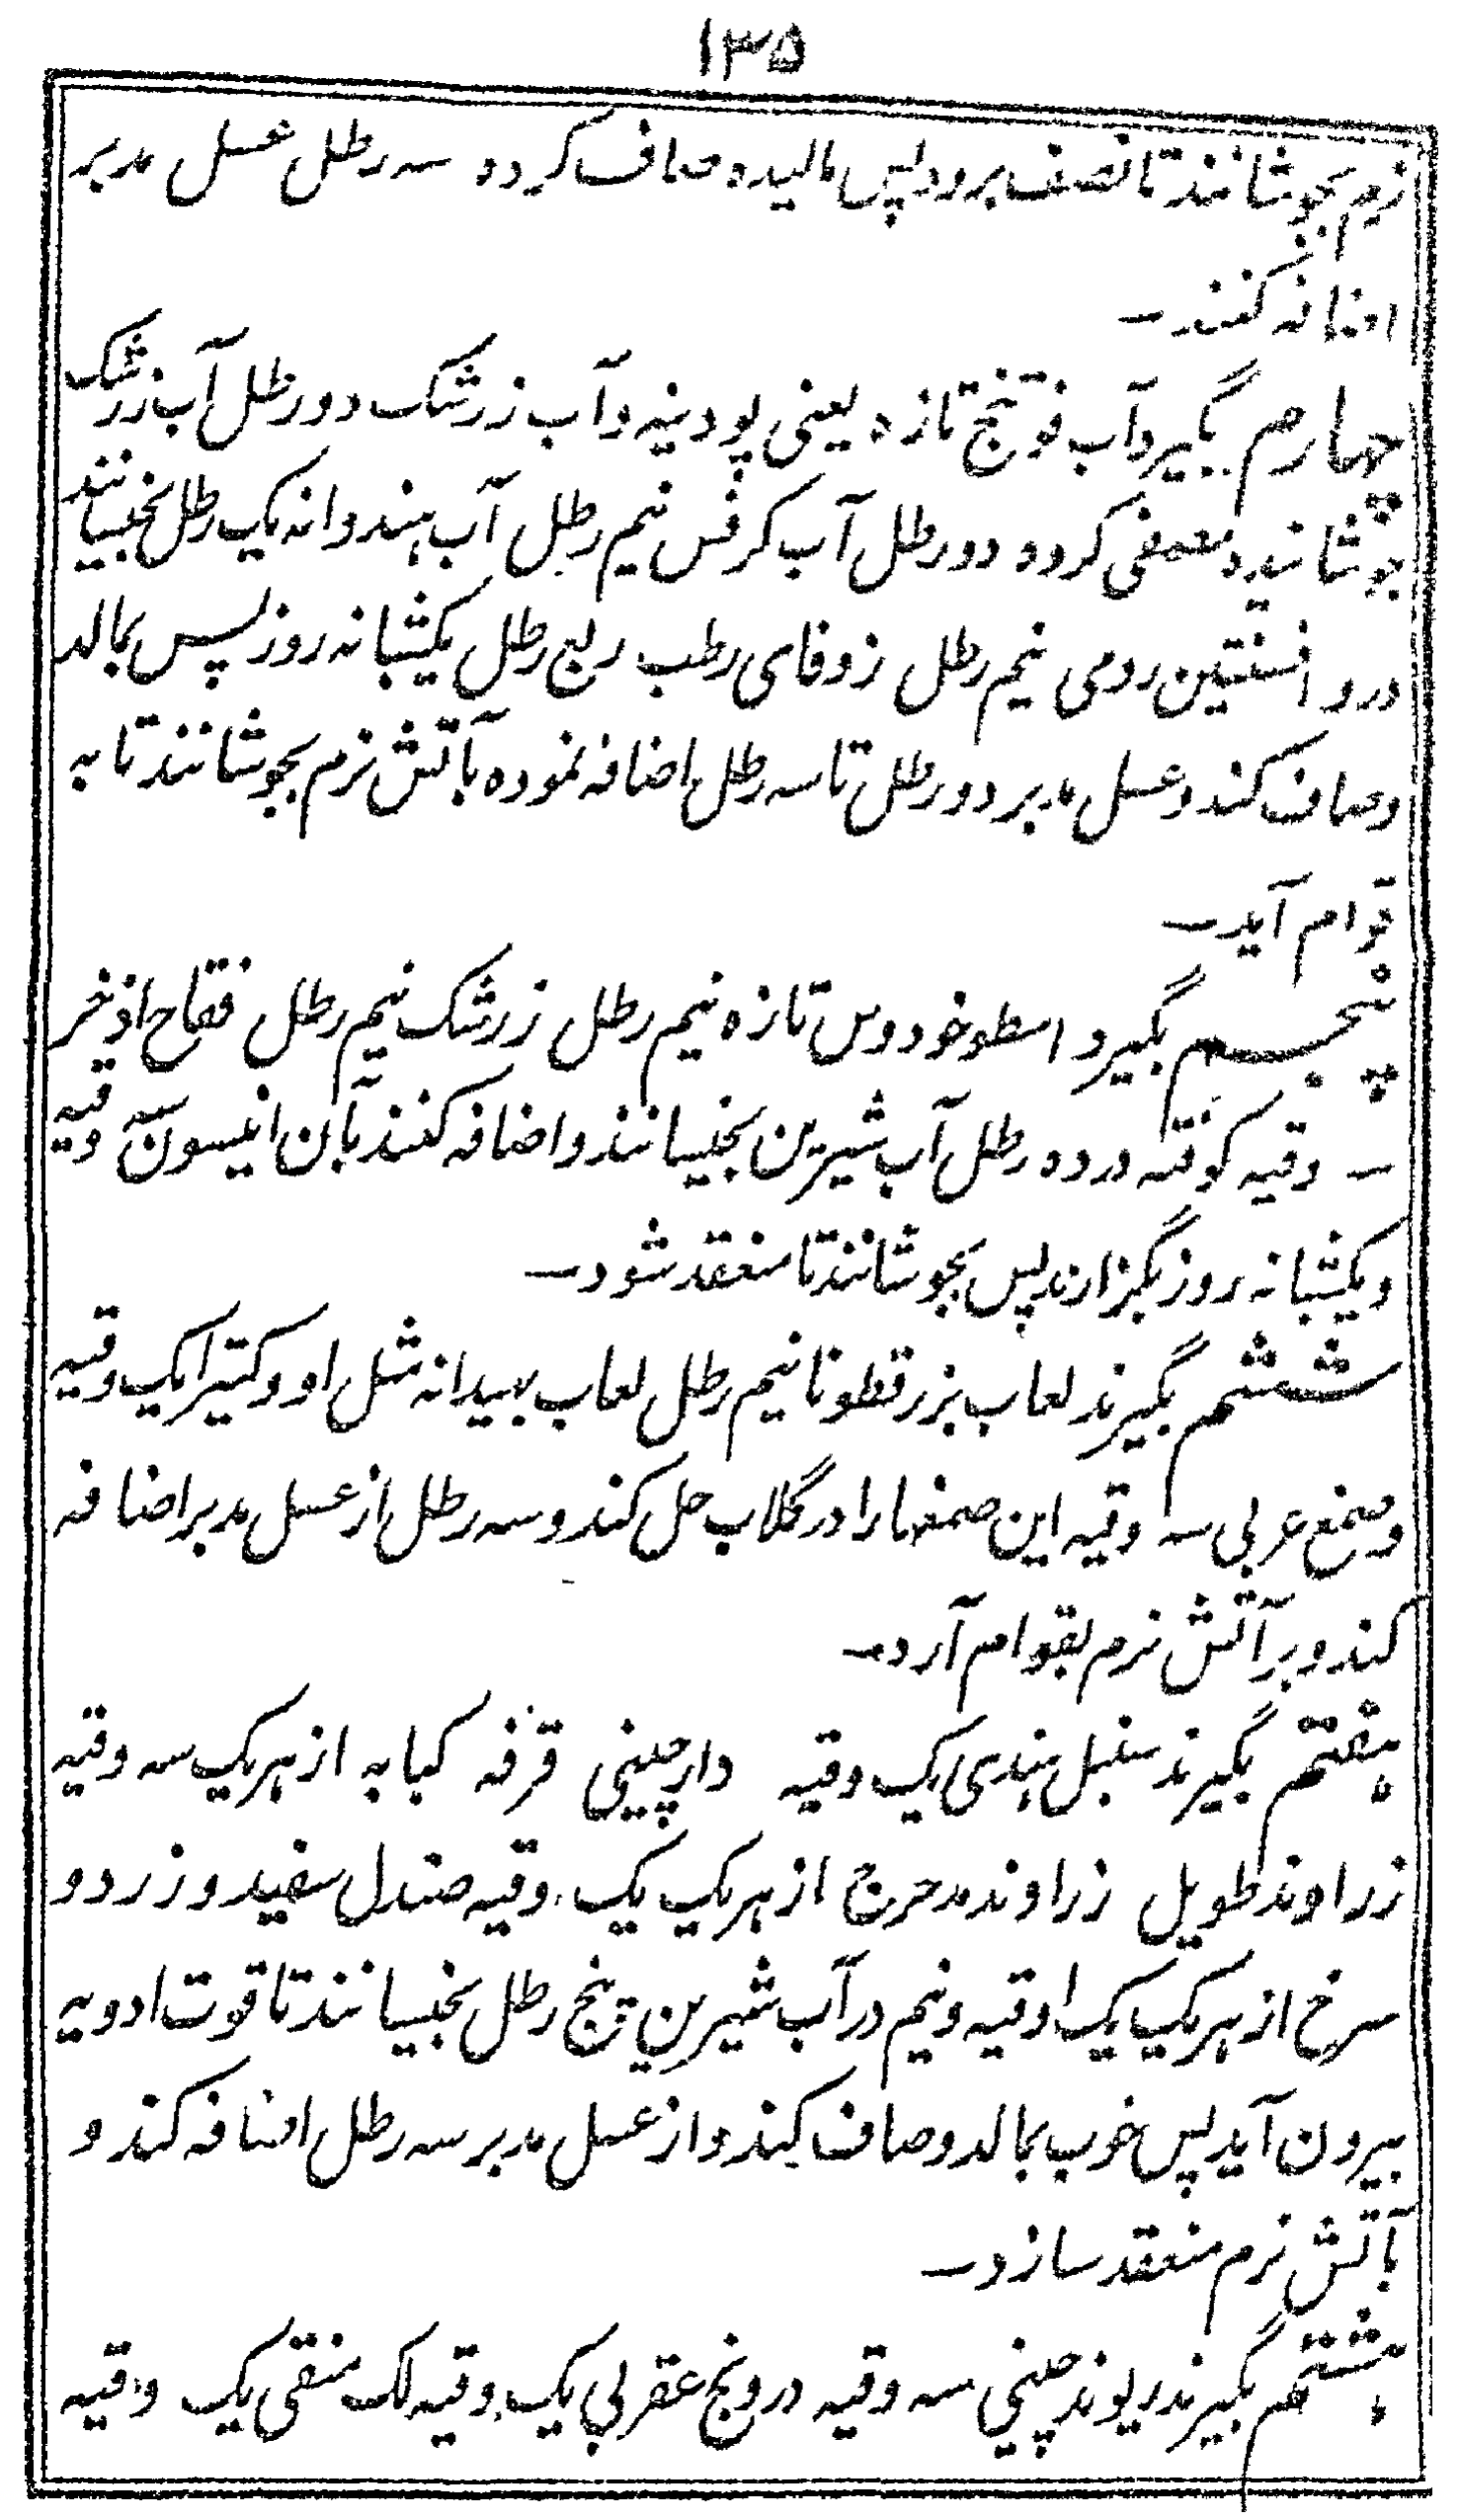 ۱۳۵
نرم بجوشانند تا نصف برود پس مالیده صاف کرده سه رطل عسل مدبر
اضافه کنند ــ
چهارم بگیرد آب فوتنج تازه یعنی پودینه و آب زرشک دو رطل آب زرشک
جوشانیده مصفی کرده دو رطل آب کرفس نیم رطل آب هندوانه یک رطل بخیسانند
درو افسنتین رومی نیم رطل زوفای رطب ربع رطل یکشبانه روز پس بمالد
و صاف کند و عسل مدبر دو رطل تا سه رطل اضافه نموده بآتش نرم بجوشانند تا به
قوام آید ــ
پنجم بگیرد اسطوخودوس تازه نیم رطل زرشک نیم رطل فقاح اذخر
ــ وقیه کوفته در ده رطل آب شیرین بخیسانند و اضافه کنند بآن انیسون سه وقیه
و یکشبانه روز بگزارند پس بجوشانند تا منعقد شود ــ
ششم بگیرند لعاب بزرقطونا نیم رطل لعاب بهیدانه مثل او و کتیرا یک وقیه
و صمغ عربی سه وقیه این صمغها را در گلاب حل کند و سه رطل از عسل مدبر اضافه
کند و بر آتش نرم بقوام آرد ــ
هفتم بگیرند سنبل هندی یک وقیه دارچینی قرفه کبابه از هر یک سه وقیه
زراوند طویل زراوند مدحرج از هر یک یک وقیه صندل سفید و زرد و
سرخ از هر یک یک اوقیه و نیم در آب شیرین پنج رطل بخیسانند تا قوت ادویه
بیرون آید پس خوب بمالد و صاف کند و از عسل مدبر سه رطل اضافه کند و
بآتش نرم منعقد سازد ــ
هشتم بگیرند ریوند چینی سه وقیه درونج عقربی یک وقیه لک منقی یک وقیه